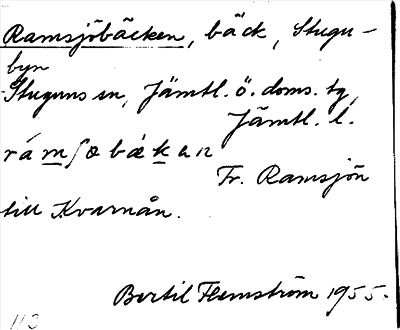 Ramsjöbäcken, bäck, Stugu-
byn
Stuguns sn, Jämtl. ö. doms. tg,
Jämtl. l.
rámʃobäkan
Fr. Ramsjön
till Kvarnån.
Bertil Flemström 1955.
113